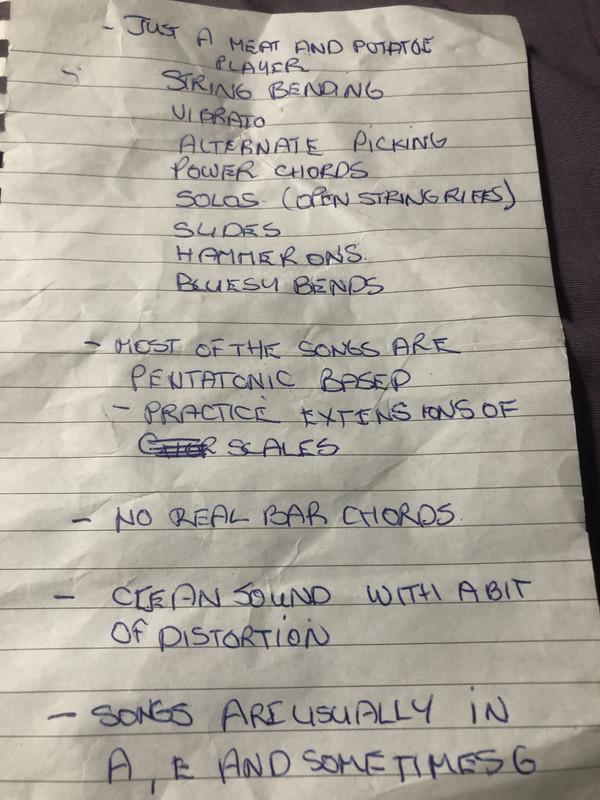 - JUST A MEAT AND POTATOE
PLAYER
STRING BENDING
VIBRATO
ALTERNATE PICKING
POWER CHORDS
SOLOS. (OPEN STRING RIFFS)
SLIDES
HAMMER ONS.
BLUESY BENDS
- MOST OF THE SONGS ARE
PENTATONIC BASED
- PRACTICE EXTENSIONS OF
SCALES
- NO REAL BAR CHORDS.
- CLEAN SOUND WITH A BIT
OF DISTORTION
- SONGS ARE USUALLY IN
A, E AND SOMETIMES G